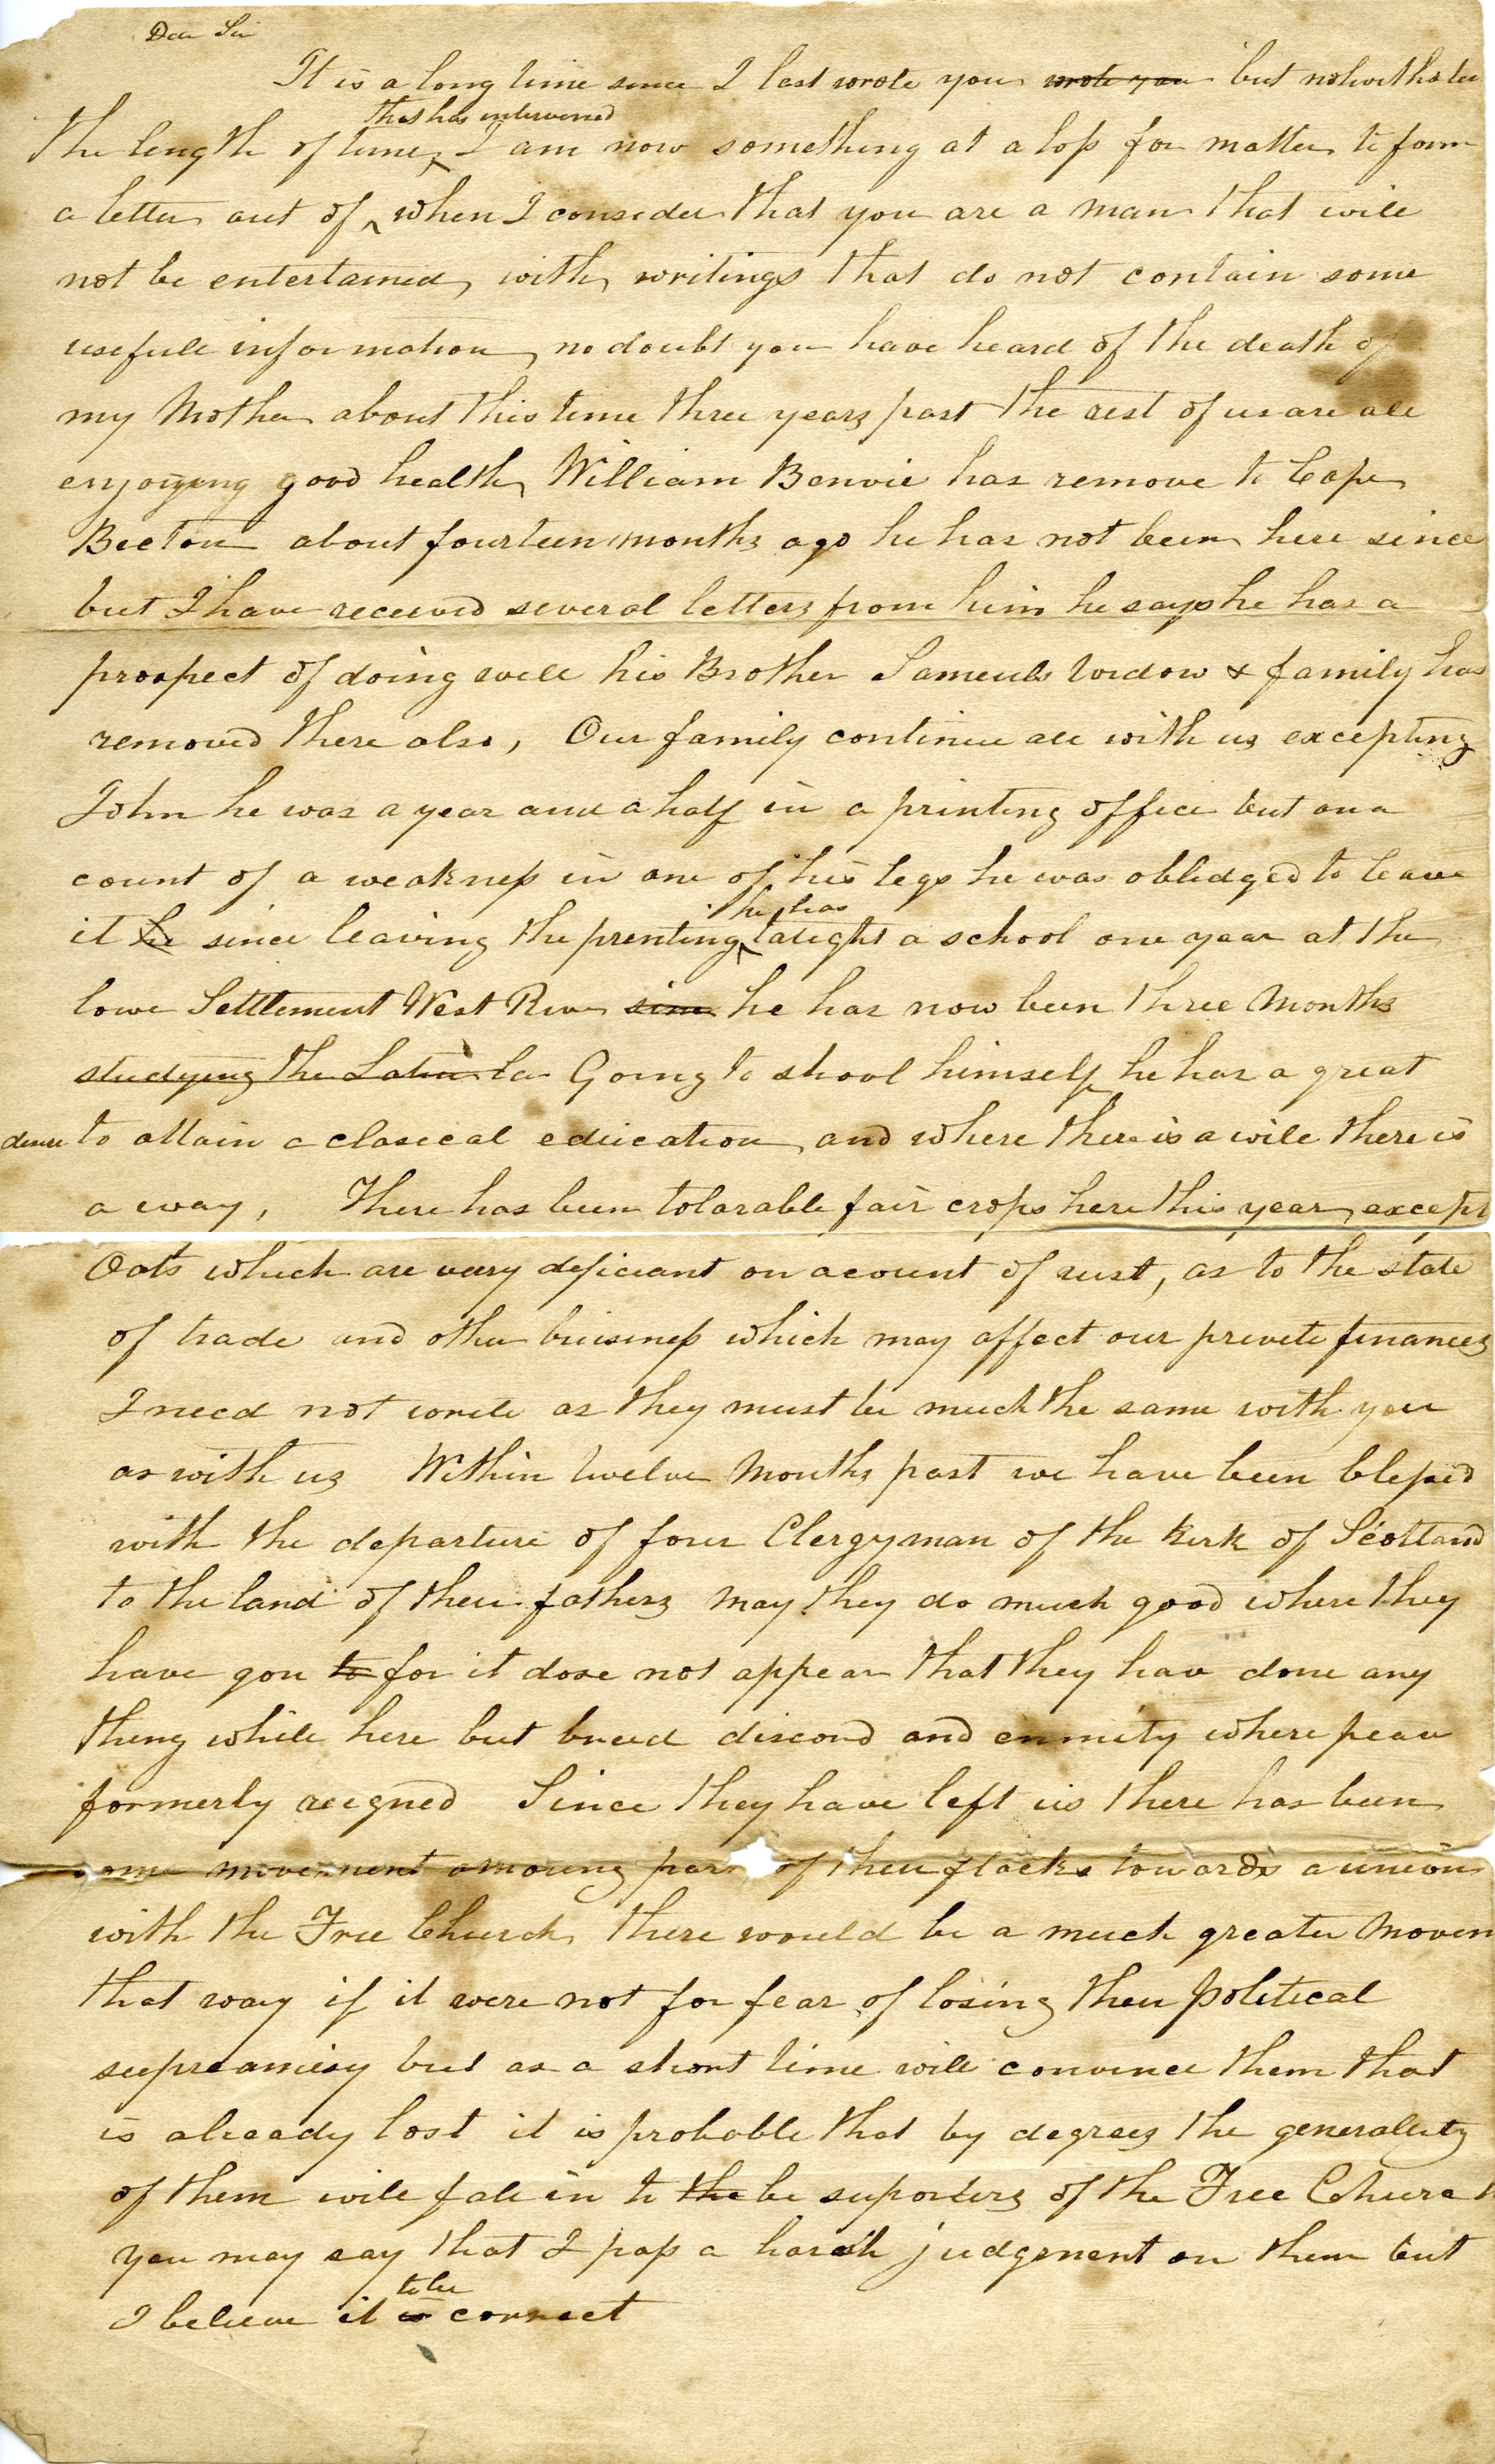 Dear Sir
It is a long time since I last wrote you wrote you but notwithstan
that has intervened
the length of time I am now something at a loss for matter to form
a letter out of when I consider that you are a man that will
not be entertained with writings that do not contain some
usefull information no doubt you have heard of the death of
my Mother about this time three years past the rest of us are all
enjoying good health William Bonvie has remove to Cape
Breton about fourteen months ago he has not been here since
but I have received several letters from him he says he has a
prospect of doing well his Brother Sameuls widow & family has
removed there also, Our family continue all with us excepting
John he was a year and a half in a printing office but on a
count of a weakness in one of his legs he was obledged to leave
he has
it he since leaving the prenting taught a school one year at the
lowe Settlement West River since he has now been three Months
studying the Latin la Going to shool himself he has a great
desire to attain a clasecal education and where there is a will there is
a way, There has been tolarable fair crops here this year except
Oats which are very deficiant on acount of rust, as to the state
of trade and other buisness which may affect our privete finances
I need not write as they must be much the same with you
as with us Within twelve Months past we have been blessed
with the departure of four Clergyman of the kirk of Scotland
to the land of their fathers may they do much good where they
have gon to for it dose not appear that they hav done any
thing while here but breed discord and enmity where peace
formerly reigned Since they have left us there has been
some movement amoung part of their flocks towards a union
with the Free Church there would be a much greater Movem
that way if it were not for fear of losing their political
supreamicy but as a short time will convince them that
is already lost it is probable that by degrees the generality
of them will fall in to the be suporters of the Free Church
you may say that I pass a harsh judgement on them but
to be
I believe it is correct